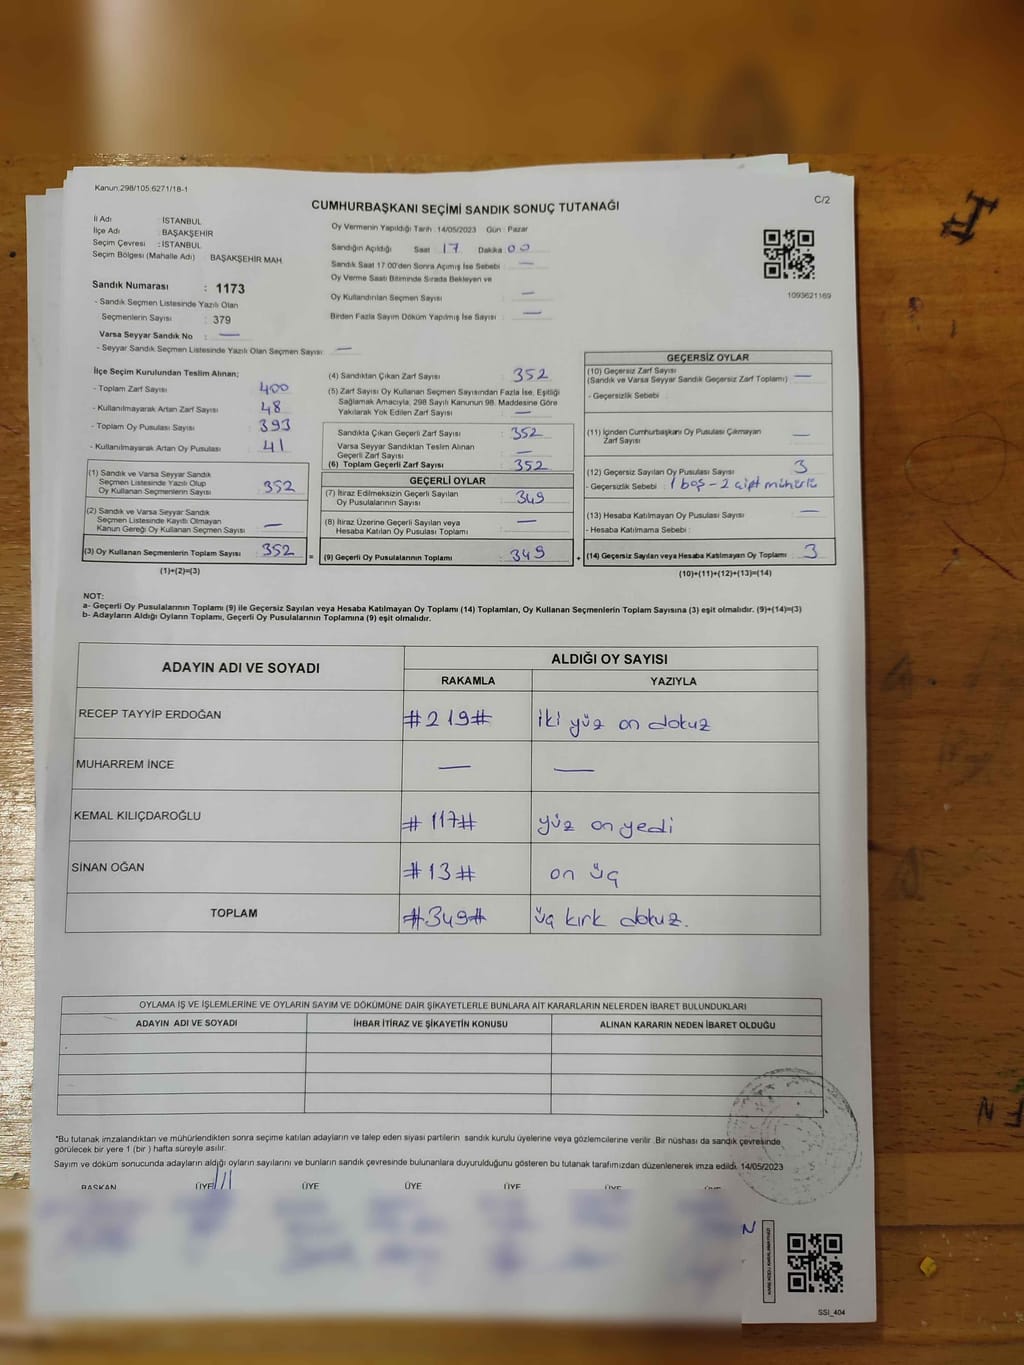 Kanun:298/105:6271/18-1
CUMHURBAŞKANI SEÇİMİ SANDIK SONUÇ TUTANAĞI
C/2
İl Adı : İSTANBUL
İlçe Adı : BAŞAKŞEHİR
Seçim Çevresi : İSTANBUL
Seçim Bölgesi (Mahalle Adı) BAŞAKŞEHİR MAH.
Sandık Numarası : 1173
- Sandık Seçmen Listesinde Yazılı Olan
Seçmenlerin Sayısı : 379
Varsa Seyyar Sandık No : —
- Seyyar Sandık Seçmen Listesinde Yazılı Olan Seçmen Sayısı: —
Oy Vermenin Yapıldığı Tarih :14/05/2023 Gün : Pazar
Sandığın Açıldığı Saat 17 Dakika 00
Sandık Saat 17:00'den Sonra Açımış İse Sebebi : —
Oy Verme Saati Bitiminde Sırada Bekleyen ve
Oy Kullandırılan Seçmen Sayısı : —
Birden Fazla Sayım Döküm Yapılmış İse Sayısı : —
1093621169
İlçe Seçim Kurulundan Teslim Alınan;
- Toplam Zarf Sayısı : 400
- Kullanılmayarak Artan Zarf Sayısı : 48
- Toplam Oy Pusulası Sayısı : 393
- Kullanılmayarak Artan Oy Pusulası : 41
(1) Sandık ve Varsa Seyyar Sandık
Seçmen Listesinde Yazılı Olup
Oy Kullanan Seçmenlerin Sayısı : 352
(2) Sandık ve Varsa Seyyar Sandık
Seçmen Listesinde Kayıtlı Olmayan
Kanun Gereği Oy Kullanan Seçmen Sayısı : —
(3) Oy Kullanan Seçmenlerin Toplam Sayısı : 352 =
(1)+(2)=(3)
(4) Sandıktan Çıkan Zarf Sayısı : 352
(5) Zarf Sayısı Oy Kullanan Seçmen Sayısından Fazla İse, Eşitliği
Sağlamak Amacıyla, 298 Sayılı Kanunun 98. Maddesine Göre
Yakılarak Yok Edilen Zarf Sayısı : —
Sandıkta Çıkan Geçerli Zarf Sayısı : 352
Varsa Seyyar Sandıktan Teslim Alınan
Geçerli Zarf Sayısı : —
(6) Toplam Geçerli Zarf Sayısı : 352
GEÇERLİ OYLAR
(7) İtiraz Edilmeksizin Geçerli Sayılan
Oy Pusulalarının Sayısı : 349
(8) İtiraz Üzerine Geçerli Sayılan veya
Hesaba Katılan Oy Pusulası Toplamı : —
(9) Geçerli Oy Pusulalarının Toplamı : 349 +
GEÇERSİZ OYLAR
(10) Geçersiz Zarf Sayısı
(Sandık ve Varsa Seyyar Sandık Geçersiz Zarf Toplamı) : —
- Geçersizlik Sebebi :
(11) İçinden Cumhurbaşkanı Oy Pusulası Çıkmayan
Zarf Sayısı : —
(12) Geçersiz Sayılan Oy Pusulası Sayısı : 3
- Geçersizlik Sebebi : 1 boş - 2 çift mühürlü
(13) Hesaba Katılmayan Oy Pusulası Sayısı : —
- Hesaba Katılmama Sebebi :
(14) Geçersiz Sayılan veya Hesaba Katılmayan Oy Toplamı : 3
(10)+(11)+(12)+(13)=(14)
NOT:
a- Geçerli Oy Pusulalarının Toplamı (9) ile Geçersiz Sayılan veya Hesaba Katılmayan Oy Toplamı (14) Toplamları, Oy Kullanan Seçmenlerin Toplam Sayısına (3) eşit olmalıdır. (9)+(14)=(3)
b- Adayların Aldığı Oyların Toplamı, Geçerli Oy Pusulalarının Toplamına (9) eşit olmalıdır.
ADAYIN ADI VE SOYADI
ALDIĞI OY SAYISI
RAKAMLA YAZIYLA
RECEP TAYYİP ERDOĞAN #219# iki yüz on dokuz
MUHARREM İNCE — —
KEMAL KILIÇDAROĞLU #117# yüz on yedi
SİNAN OĞAN #13# on üç
TOPLAM #349# üç kırk dokuz.
OYLAMA İŞ VE İŞLEMLERİNE VE OYLARIN SAYIM VE DÖKÜMÜNE DAİR ŞİKAYETLERLE BUNLARA AİT KARARLARIN NELERDEN İBARET BULUNDUKLARI
ADAYIN ADI VE SOYADI İHBAR İTİRAZ VE ŞİKAYETİN KONUSU ALINAN KARARIN NEDEN İBARET OLDUĞU
*Bu tutanak imzalandıktan ve mühürlendikten sonra seçime katılan adayların ve talep eden siyasi partilerin sandık kurulu üyelerine veya gözlemcilerine verilir .Bir nüshası da sandık çevresinde
görülecek bir yere 1 (bir ) hafta süreyle asılır.
Sayım ve döküm sonucunda adayların aldığı oyların sayılarını ve bunların sandık çevresinde bulunanlara duyurulduğunu gösteren bu tutanak tarafımızdan düzenlenerek imza edildi. 14/05/2023
BAŞKAN ÜYE ÜYE ÜYE ÜYE ÜYE ÜYE
SSİ_404